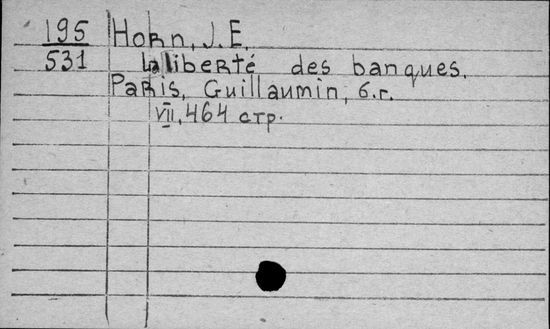 195 Horn, J. E.
531 La liberté des banques.
Paris, Guillaumin, б.г.
VII, 464 стр.